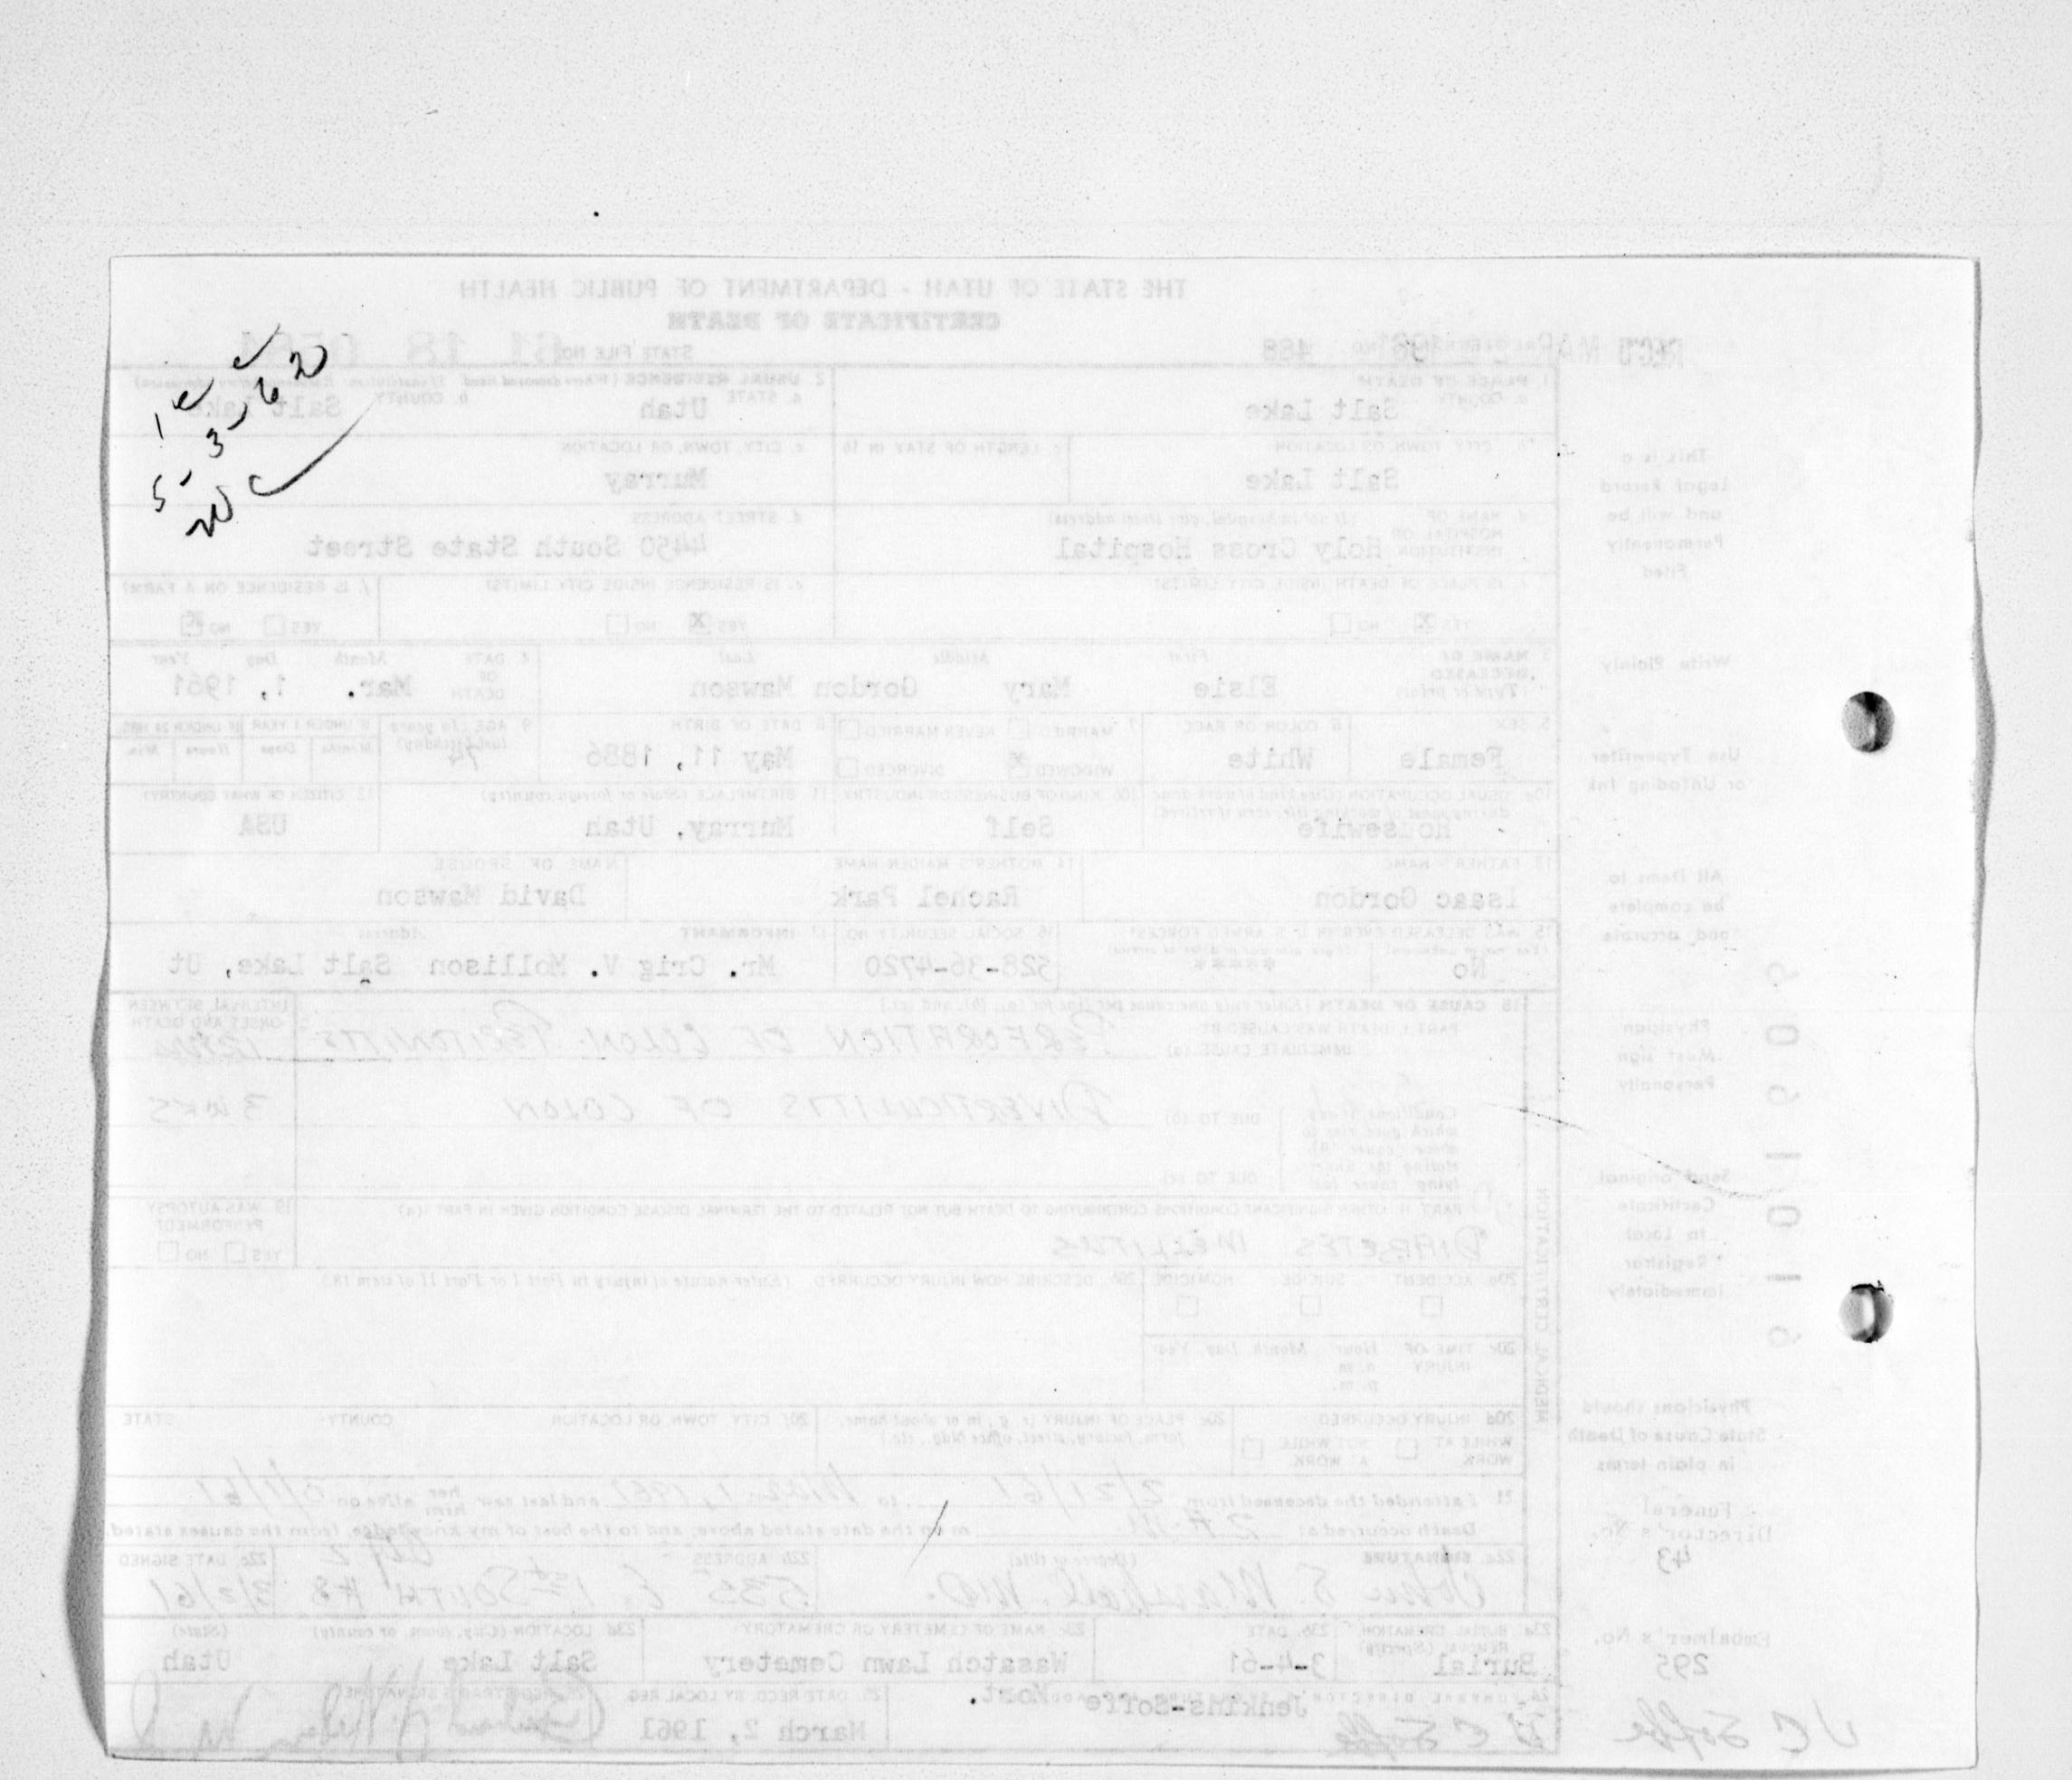 THE STATE OF UTAH - DEPARTMENT OF PUBLIC HEALTH
CERTIFICATE OF DEATH
STATE FILE NO. 61 18
488
1. PLACE OF DEATH
a. COUNTY
Salt Lake
2. USUAL RESIDENCE
a. STATE
Utah
b. COUNTY
Salt Lake
CITY, TOWN, OR LOCATION
Salt Lake
c. LENGTH OF STAY IN 1b
c. CITY, TOWN, OR LOCATION
Murray
d. NAME OF HOSPITAL OR INSTITUTION (If not in hospital, give street address)
Holy Cross Hospital
d. STREET ADDRESS
4450 South State Street
IS PLACE OF DEATH INSIDE CITY LIMITS?
YES X NO
e. IS RESIDENCE INSIDE CITY LIMITS?
YES X NO
f. IS RESIDENCE ON A FARM?
YES NO X
3. NAME OF DECEASED (Type or print)
First Middle Last
Elsie Mary Gordon Mawson
4. DATE OF DEATH
Month Day Year
Mar. 1, 1961
5. SEX
Female
6. COLOR OR RACE
White
7. MARRIED NEVER MARRIED
WIDOWED X DIVORCED
8. DATE OF BIRTH
May 11, 1886
9. AGE (In years last birthday)
74
IF UNDER 1 YEAR IF UNDER 24 HRS.
Months Days Hours Min.
10a. USUAL OCCUPATION (Give kind of work done during most of working life, even if retired)
Housewife
10b. KIND OF BUSINESS OR INDUSTRY
Self
11. BIRTHPLACE (State or foreign country)
Murray, Utah
12. CITIZEN OF WHAT COUNTRY?
USA
13. FATHER'S NAME
Isaac Gordon
14. MOTHER'S MAIDEN NAME
Rachel Park
NAME OF SPOUSE
David Mawson
15. WAS DECEASED EVER IN U. S. ARMED FORCES?
No
16. SOCIAL SECURITY NO.
528-36-4720
17. INFORMANT Address
Mr. Crig V. Mollison Salt Lake, Ut
18. CAUSE OF DEATH (Enter only one cause per line for (a), (b), and (c).)
PART I. DEATH WAS CAUSED BY:
IMMEDIATE CAUSE (a) PERFORATION OF COLON. PERITONITIS
INTERVAL BETWEEN ONSET AND DEATH
DUE TO (b) DIVERTICULITIS OF COLON
3 WKS
DUE TO (c)
PART II. OTHER SIGNIFICANT CONDITIONS CONTRIBUTING TO DEATH BUT NOT RELATED TO THE TERMINAL DISEASE CONDITION GIVEN IN PART I (a)
DIABETES MELLITUS
19. WAS AUTOPSY PERFORMED?
YES NO
20a. ACCIDENT SUICIDE HOMICIDE
20b. DESCRIBE HOW INJURY OCCURRED. (Enter nature of injury in Part I or Part II of item 18.)
20c. TIME OF INJURY
Hour Month, Day, Year
a. m.
p. m.
20d. INJURY OCCURRED
WHILE AT WORK NOT WHILE AT WORK
20e. PLACE OF INJURY (e. g., in or about home, farm, factory, street, office bldg., etc.)
20f. CITY, TOWN, OR LOCATION COUNTY STATE
21. I attended the deceased from 2/21/61 to Mar. 1, 1961 and last saw her him alive on 3/1/61
Death occurred at 2 A.M. m on the date stated above; and to the best of my knowledge, from the causes stated.
22a. SIGNATURE (Degree or title)
John S. Marshall MD.
22b. ADDRESS
535 E. 1st SOUTH #8
City 2
22c. DATE SIGNED
3/2/61
23a. BURIAL, CREMATION, REMOVAL (Specify)
Burial
23b. DATE
3-4-61
23c. NAME OF CEMETERY OR CREMATORY
Wasatch Lawn Cemetery
23d. LOCATION (City, town, or county) (State)
Salt Lake Utah
24. FUNERAL DIRECTOR
Jenkins-Soffe Mort.
25. DATE RECD. BY LOCAL REG.
March 2, 1961
REGISTRAR'S SIGNATURE
MEDICAL CERTIFICATION
This is a
Legal Record
and will be
Permanently
Filed
Write Plainly
Use Typewriter
or Unfading Ink
All Items to
be complete
and accurate
Physician
Must sign
Personally
Send original
Certificate
to Local
Registrar
Immediately
Physicians should
State Cause of Death
in plain terms
Funeral
Director's No.
43
Embalmer's No.
295
J C Soffe